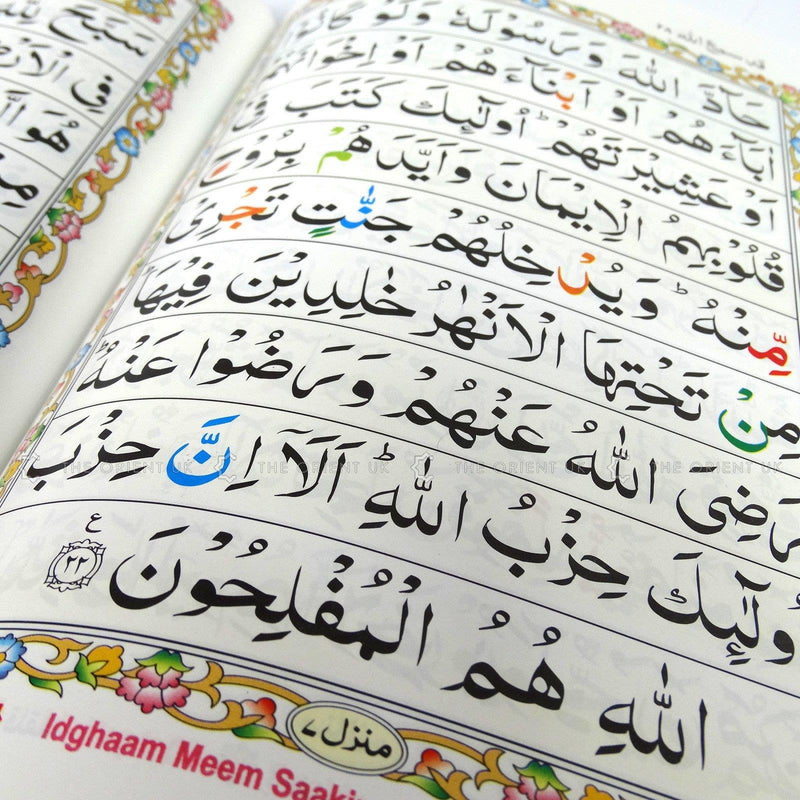 قد سمع الله ٢٨
حَآدَّ اللّٰهَ وَرَسُوْلَهٗ وَلَوْ كَانُوْۤا
اٰبَآءَهُمْ اَوْ اَبْنَآءَهُمْ اَوْ اِخْوَانَهُمْ
اَوْ عَشِيْرَتَهُمْ ؕ اُولٰٓئِكَ كَتَبَ فِىْ
قُلُوْبِهِمُ الْاِيْمَانَ وَاَيَّدَهُمْ بِرُوْحٍ
مِّنْهُ ؕ وَيُدْخِلُهُمْ جَنّٰتٍ تَجْرِىْ
مِنْ تَحْتِهَا الْاَنْهٰرُ خٰلِدِيْنَ فِيْهَا ؕ
رَضِىَ اللّٰهُ عَنْهُمْ وَرَضُوْا عَنْهُ ؕ
اُولٰٓئِكَ حِزْبُ اللّٰهِ ؕ اَلَاۤ اِنَّ حِزْبَ
اللّٰهِ هُمُ الْمُفْلِحُوْنَ ع ٢٢
منزل ٧
Idghaam Meem
فِى
هُوَ
THE ORIENT UK THE ORIENT UK THE ORIENT UK THE ORIENT UK